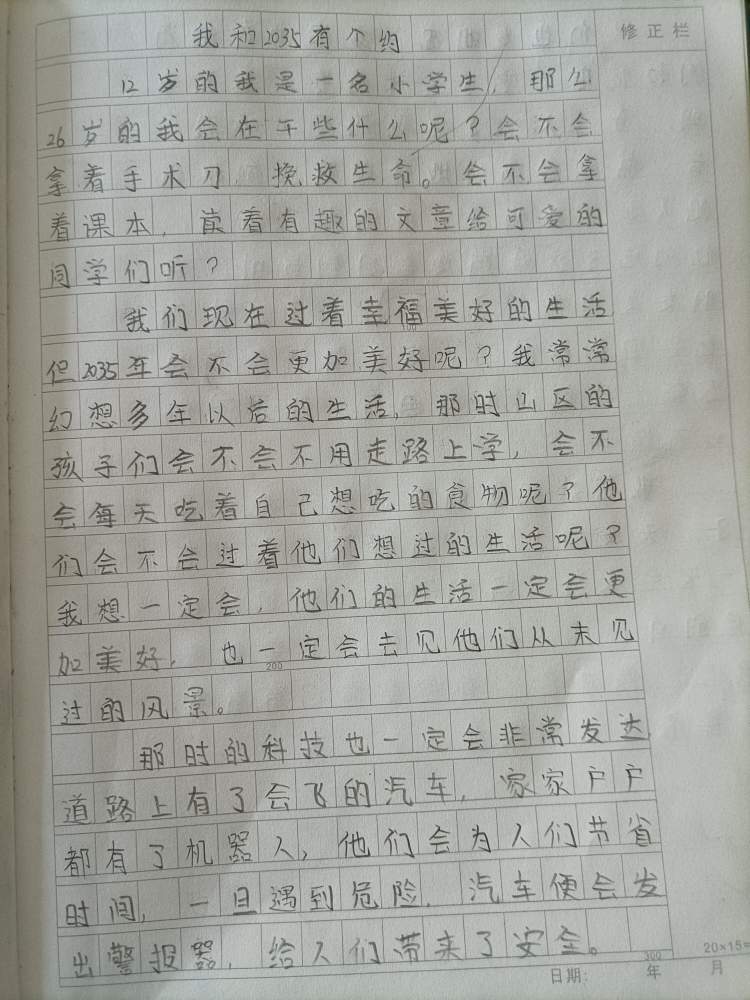 我和2035有个约
修正栏
12岁的我是一名小学生，那么
26岁的我会在干些什么呢？会不会
拿着手术刀，挽救生命。会不会拿
着课本，读着有趣的文章给可爱的
同学们听？
我们现在过着幸福美好的生活
但2035年会不会更加美好呢？我常常
幻想多年以后的生活，那时山区的
孩子们会不会不用走路上学，会不
会每天吃着自己想吃的食物呢？他
们会不会过着他们想过的生活呢？
我想一定会，他们的生活一定会更
加美好，也一定会去见他们从未见
200
过的风景。
那时的科技也一定会非常发达
道路上有了会飞的汽车，家家户户
都有了机器人，他们会为人们节省
时间，一旦遇到危险，汽车便会发
出警报器，给人们带来了安全。
300
20×15=
日期： 年 月